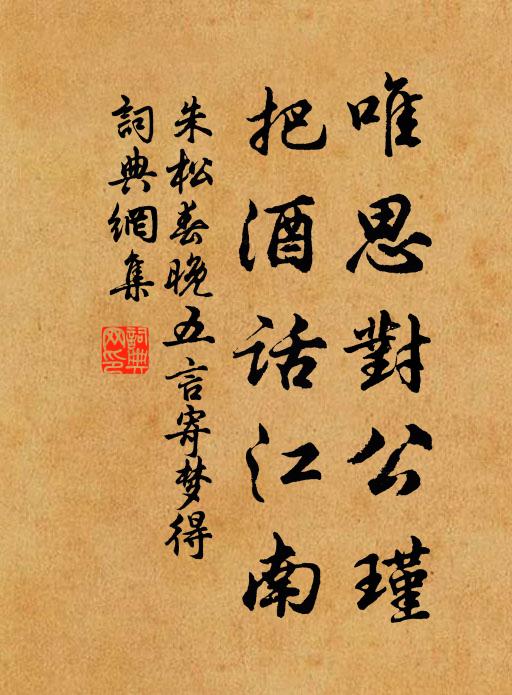 唯思對公瑾
把酒話江南
朱松春晚五言寄梦得
詞典網集
詞典
网印